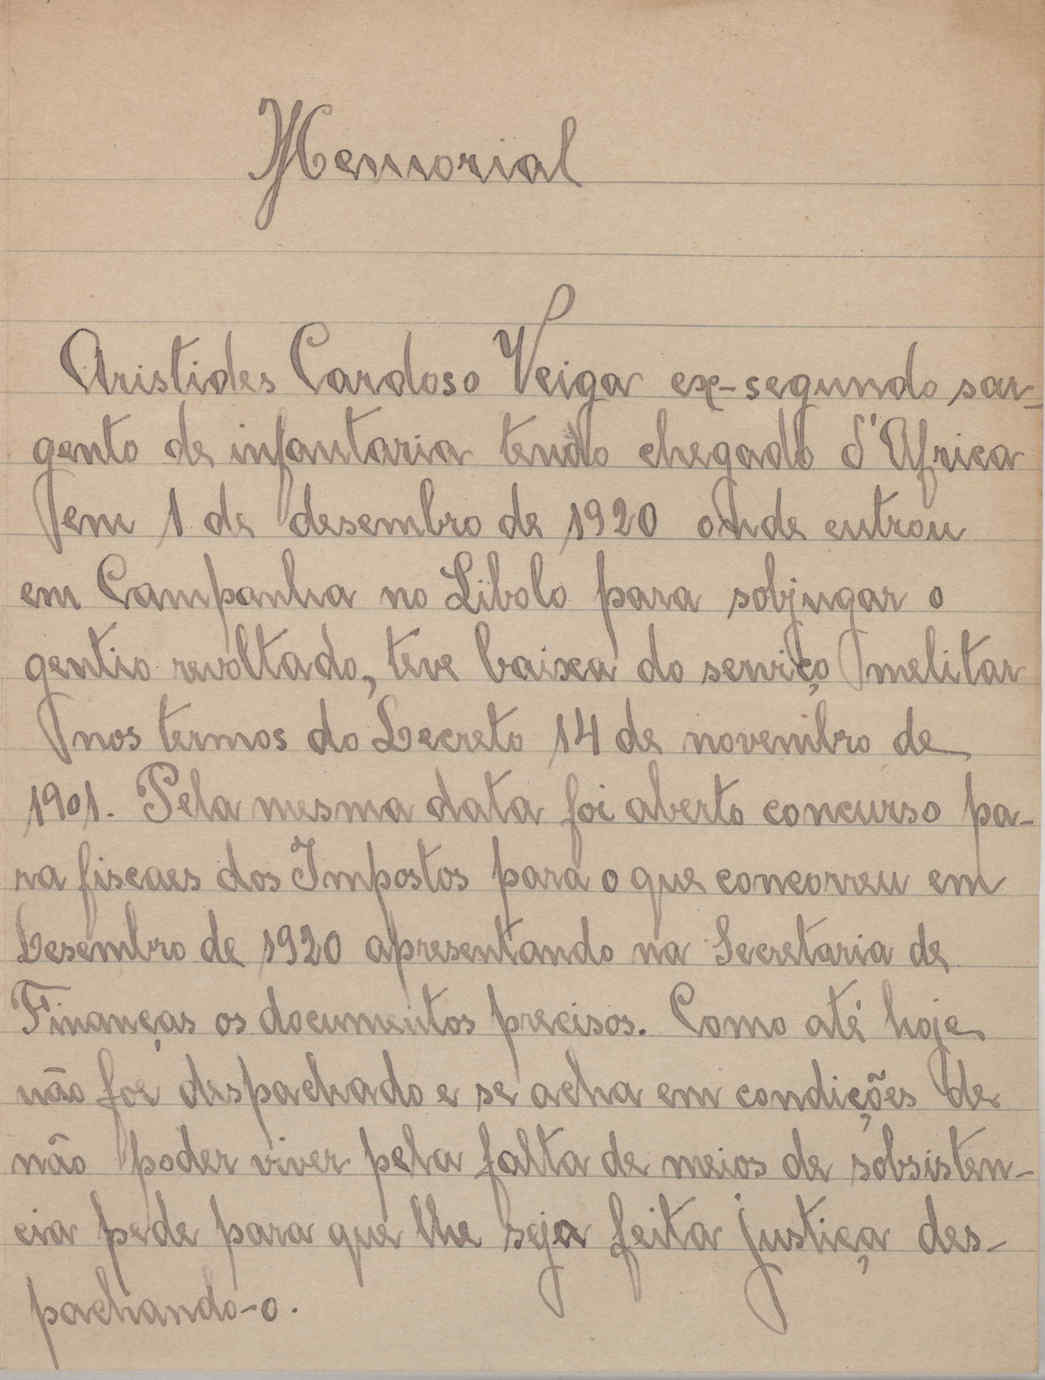 Memorial
Aristides Cardoso Veiga ex-segundo sar-
gento de infantaria tendo chegado d'Africa
em 1 de desembro de 1920 onde entrou
em Campanha no Libolo para sobjugar o
gentio revoltado, teve baixa do serviço melitar
nos termos do Decreto 14 de novembro de
1901. Pela mesma data foi aberto concurso pa-
ra fiscaes dos Impostos para o que concorreu em
Desembro de 1920 apresentando na Secretaria de
Finanças os documentos precisos. Como até hoje
não foi despachado e se acha em condições de
não poder viver pela falta de meios de sobsisten-
cia pede para que lhe seja feita justiça des-
pachando-o.